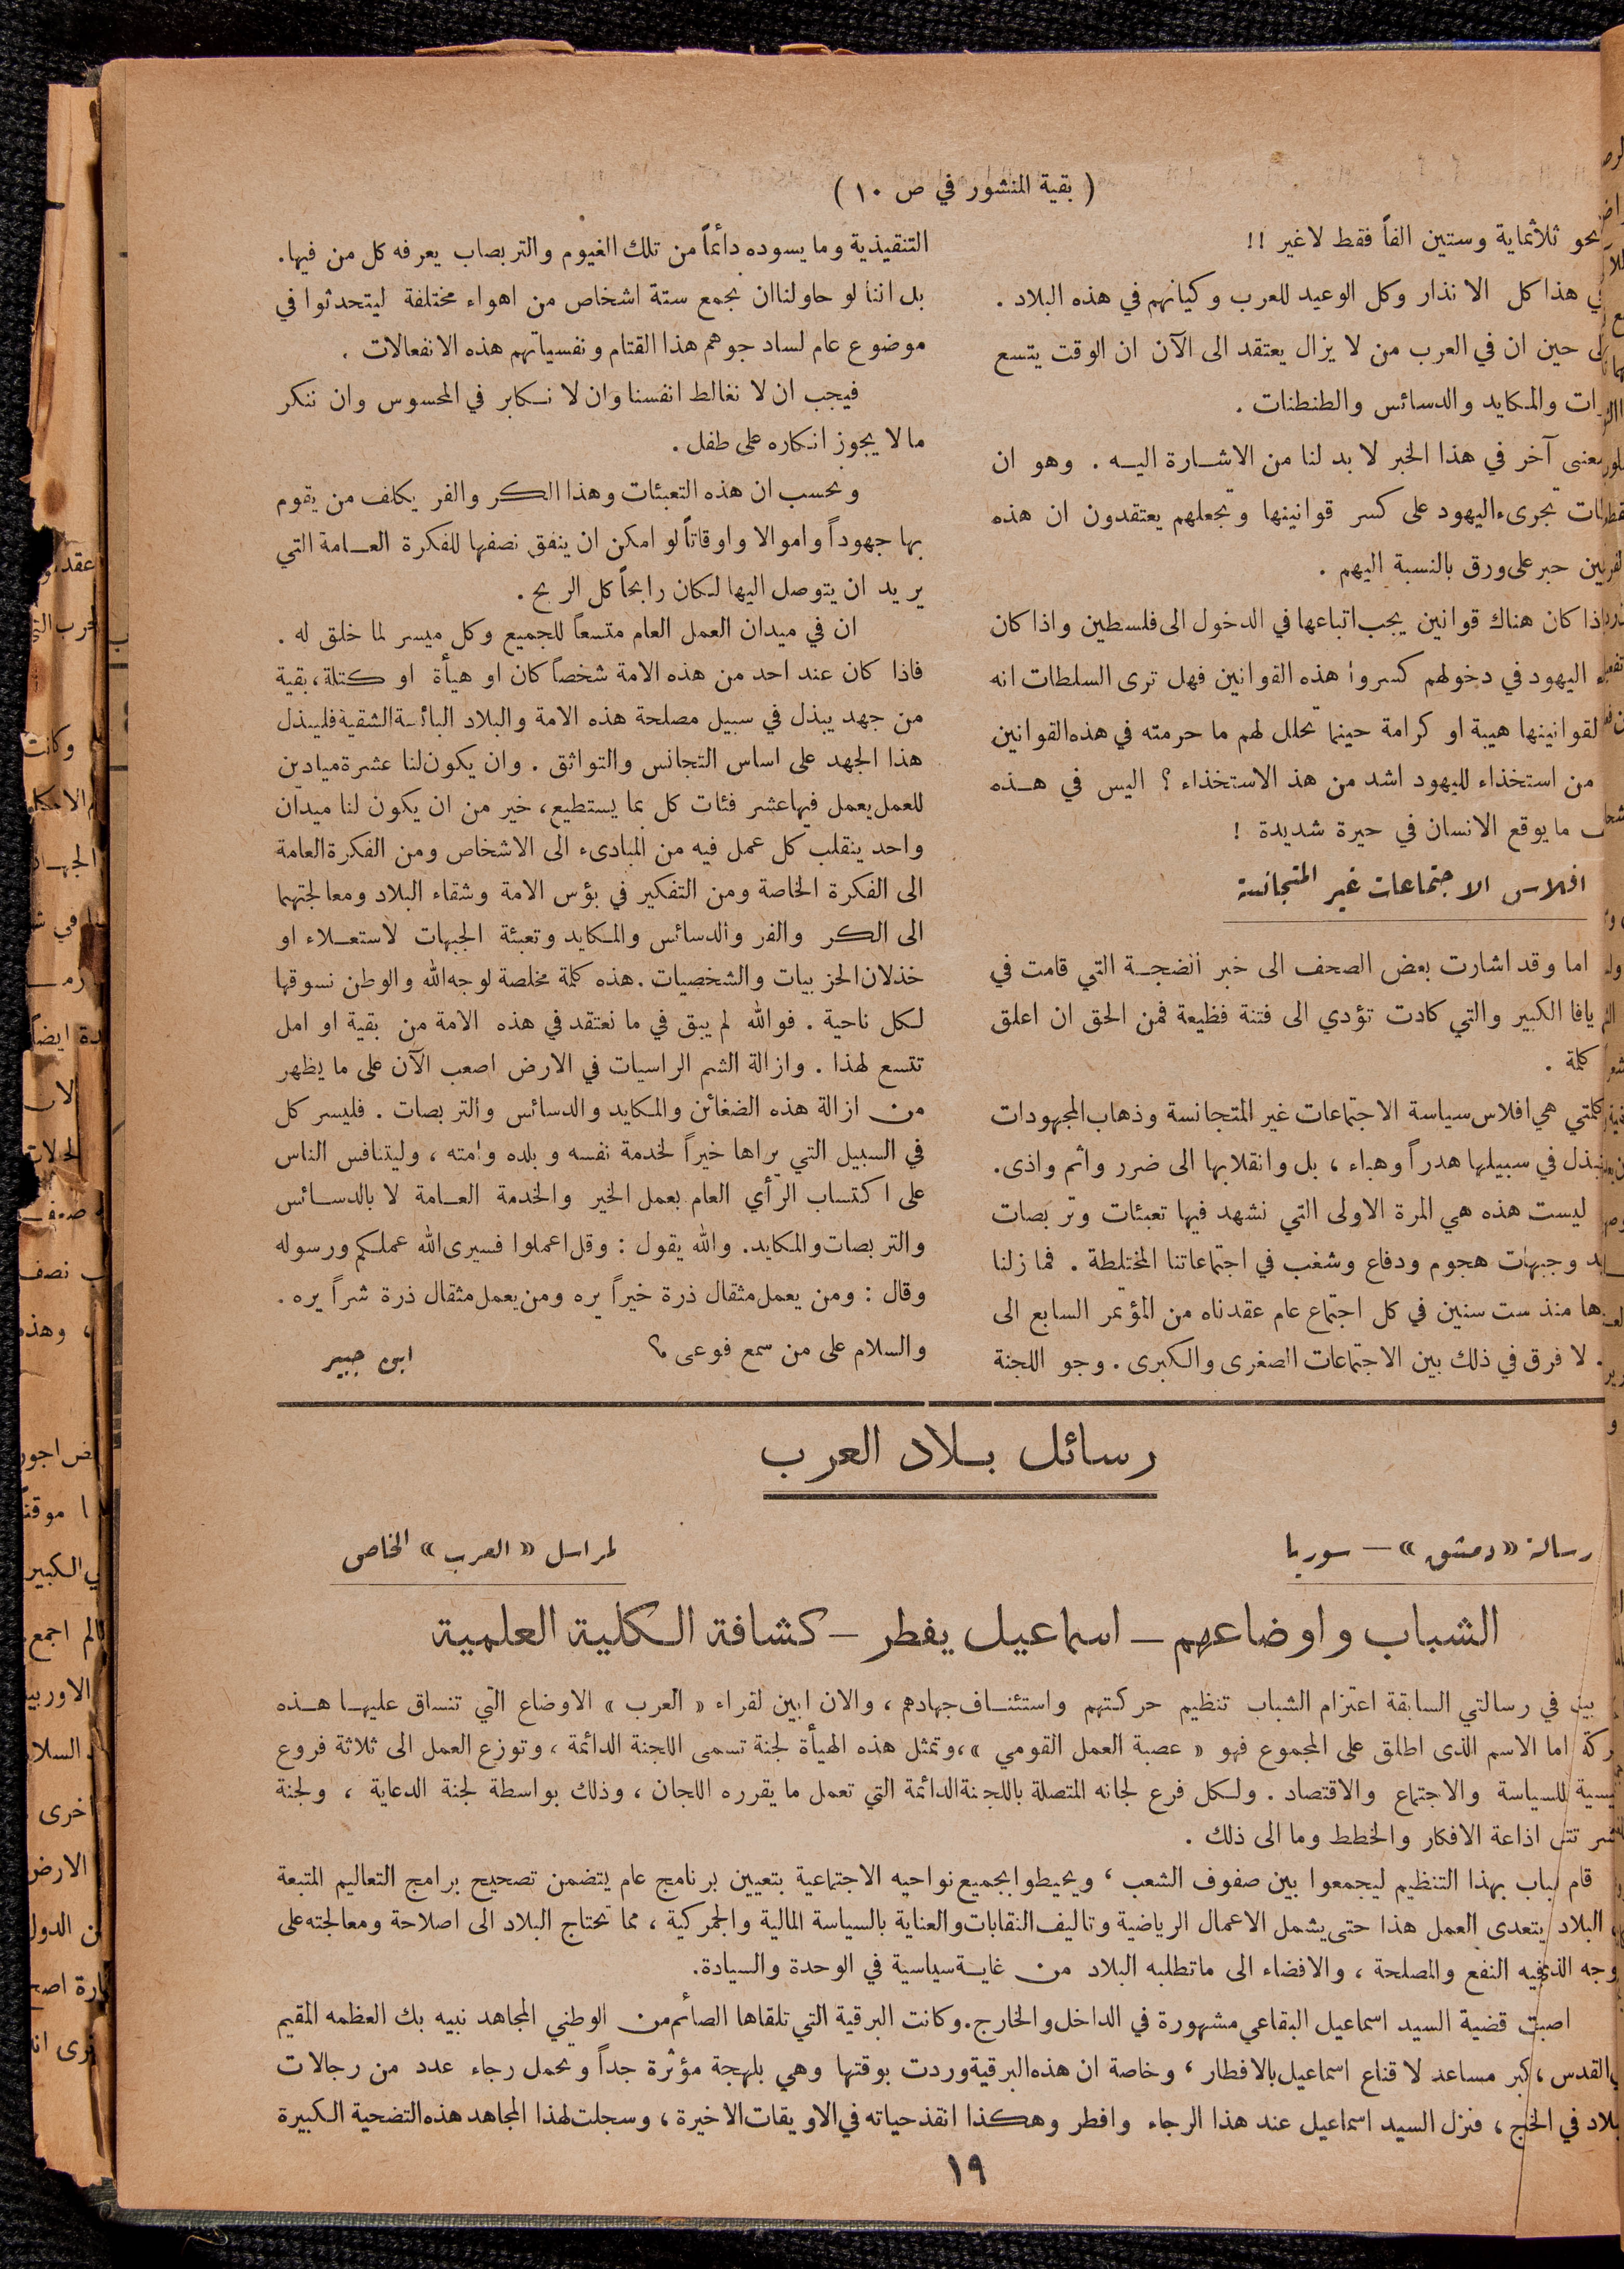 ( بقية المنشور في ص ١٠ )
نحو ثلاثماية وستين الفاً فقط لاغير !!
في هذا كل الانذار وكل الوعيد للعرب وكيانهم في هذه البلاد .
حين ان في العرب من لا يزال يعتقد الى الآن ان الوقت يتسع
والمكايد والدسائس والطنطنات .
معنى آخر في هذا الخبر لا بد لنا من الاشارة اليه . وهو ان
تجرىء اليهود على كسر قوانينها وتجعلهم يعتقدون ان هذه
حبر على ورق بالنسبة اليهم .
اذا كان هناك قوانين يجب اتباعها في الدخول الى فلسطين واذا كان
اليهود في دخولهم كسروا هذه القوانين فهل ترى السلطات انه
لقوانينها هيبة او كرامة حينما تحلل لهم ما حرمته في هذه القوانين
من استخذاء لليهود اشد من هذ الاستخذاء ؟ اليس في هذه
ما يوقع الانسان في حيرة شديدة !
افلاس الاجتماعات غير المتجانسة
اما وقد اشارت بعض الصحف الى خبر الضجة التي قامت في
يافا الكبير والتي كادت تؤدي الى فتنة فظيعة فمن الحق ان اعلق
كلمة .
كلمتي هي افلاس سياسة الاجتماعات غير المتجانسة وذهاب المجهودات
تبذل في سبيلها هدراً وهباء ، بل وانقلابها الى ضرر واثم واذى .
ليست هذه هي المرة الاولى التي نشهد فيها تعبئات وتربصات
وجبهات هجوم ودفاع وشغب في اجتماعاتنا المختلطة . فما زلنا
منذ ست سنين في كل اجتماع عام عقدناه من المؤتمر السابع الى
. لا فرق في ذلك بين الاجتماعات الصغرى والكبرى . وجو اللجنة
التنقيذية وما يسوده دائماً من تلك الغيوم والتربصاب يعرفه كل من فيها .
بل اننا لو حاولنا ان نجمع ستة اشخاص من اهواء مختلفة ليتحدثوا في
موضوع عام لساد جوهم هذا القتام ونفسياتهم هذه الانفعالات .
فيجب ان لا نغالط انفسنا وان لا نكابر في المحسوس وان ننكر
ما لا يجوز انكاره على طفل .
ونحسب ان هذه التعبئات وهذا الكر والفر يكلف من يقوم
بها جهوداً واموالا واوقاتاً لو امكن ان ينفق نصفها للفكرة العامة التي
يريد ان يتوصل اليها لكان رابحاً كل الربح .
ان في ميدان العمل العام متسعاً للجميع وكل ميسر لما خلق له .
فاذا كان عند احد من هذه الامة شخصاً كان او هيأة او كتلة ، بقية
من جهد يبذل في سبيل مصلحة هذه الامة والبلاد البائسة الشقية فليبذل
هذا الجهد على اساس التجانس والتواثق . وان يكون لنا عشرة ميادين
للعمل يعمل فيها عشر فئات كل بما يستطيع ، خير من ان يكون لنا ميدان
واحد ينقلب كل عمل فيه من المبادىء الى الاشخاص ومن الفكرة العامة
الى الفكرة الخاصة ومن التفكير في بؤس الامة وشقاء البلاد ومعالجتهما
الى الكر والفر والدسائس والمكايد وتعبئة الجبهات لاستعلاء او
خذلان الحزبيات والشخصيات . هذه كلمة مخلصة لوجه الله والوطن نسوقها
لكل ناحية . فوالله لم يبق في ما نعتقد في هذه الامة من بقية او امل
تتسع لهذا . وازالة الشم الراسيات في الارض اصعب الآن على ما يظهر
من ازالة هذه الضغائن والمكايد والدسائس والتربصات . فليسر كل
في السبيل التي يراها خيراً لخدمة نفسه وبلده وامته ، وليتنافس الناس
على اكتساب الرأي العام بعمل الخير والخدمة العامة لا بالدسائس
والتربصات والمكايد . والله يقول : وقل اعملوا فسيرى الله عملكم ورسوله
وقال : ومن يعمل مثقال ذرة خيراً يره ومن يعمل مثقال ذرة شراً يره .
والسلام على من سمع فوعى ؟
ابن جبير
رسائل بلاد العرب
رسالة « دمشق » — سوريا
لمراسل « العرب » الخاص
الشباب واوضاعهم – اسماعيل يفطر – كشافة الكلية العلمية
في رسالتي السابقة اعتزام الشباب تنظيم حركتهم واستئناف جهادهم ، والان ابين لقراء « العرب » الاوضاع التي تنساق عليها هذه
اما الاسم الذى اطلق على المجموع فهو « عصبة العمل القومي » ، وتمثل هذه الهيأة لجنة تسمى اللجنة الدائمة ، وتوزع العمل الى ثلاثة فروع
للسياسة والاجتماع والاقتصاد . ولكل فرع لجانه المتصلة باللجنة الدائمة التي تعمل ما يقرره اللجان ، وذلك بواسطة لجنة الدعاية ، ولجنة
اذاعة الافكار والخطط وما الى ذلك .
قام بهذا التنظيم ليجمعوا بين صفوف الشعب ، ويحيطوا بجميع نواحيه الاجتماعية بتعيين برنامج عام يتضمن تصحيح برامج التعاليم المتبعة
البلاد يتعدى العمل هذا حتى يشمل الاعمال الرياضية وتاليف النقابات والعناية بالسياسة المالية والجمركية ، مما تحتاج البلاد الى اصلاحة ومعالجته على
وجه فيه النفع والمصلحة ، والافضاء الى ما تطلبه البلاد من غاية سياسية في الوحدة والسيادة .
قضية السيد اسماعيل البقاعي مشهورة في الداخل والخارج . وكانت البرقية التي تلقاها الصائم من الوطني المجاهد نبيه بك العظمه المقيم
القدس ، كبر مساعد لاقناع اسماعيل بالافطار ، وخاصة ان هذه البرقية وردت بوقتها وهي بلهجة مؤثرة جداً وتحمل رجاء عدد من رجالات
في ، فنزل السيد اسماعيل عند هذا الرجاء وافطر وهكذا انقذ حياته في الاويقات الاخيرة ، وسجلت لهذا المجاهد هذه التضحية الكبيرة
١٩